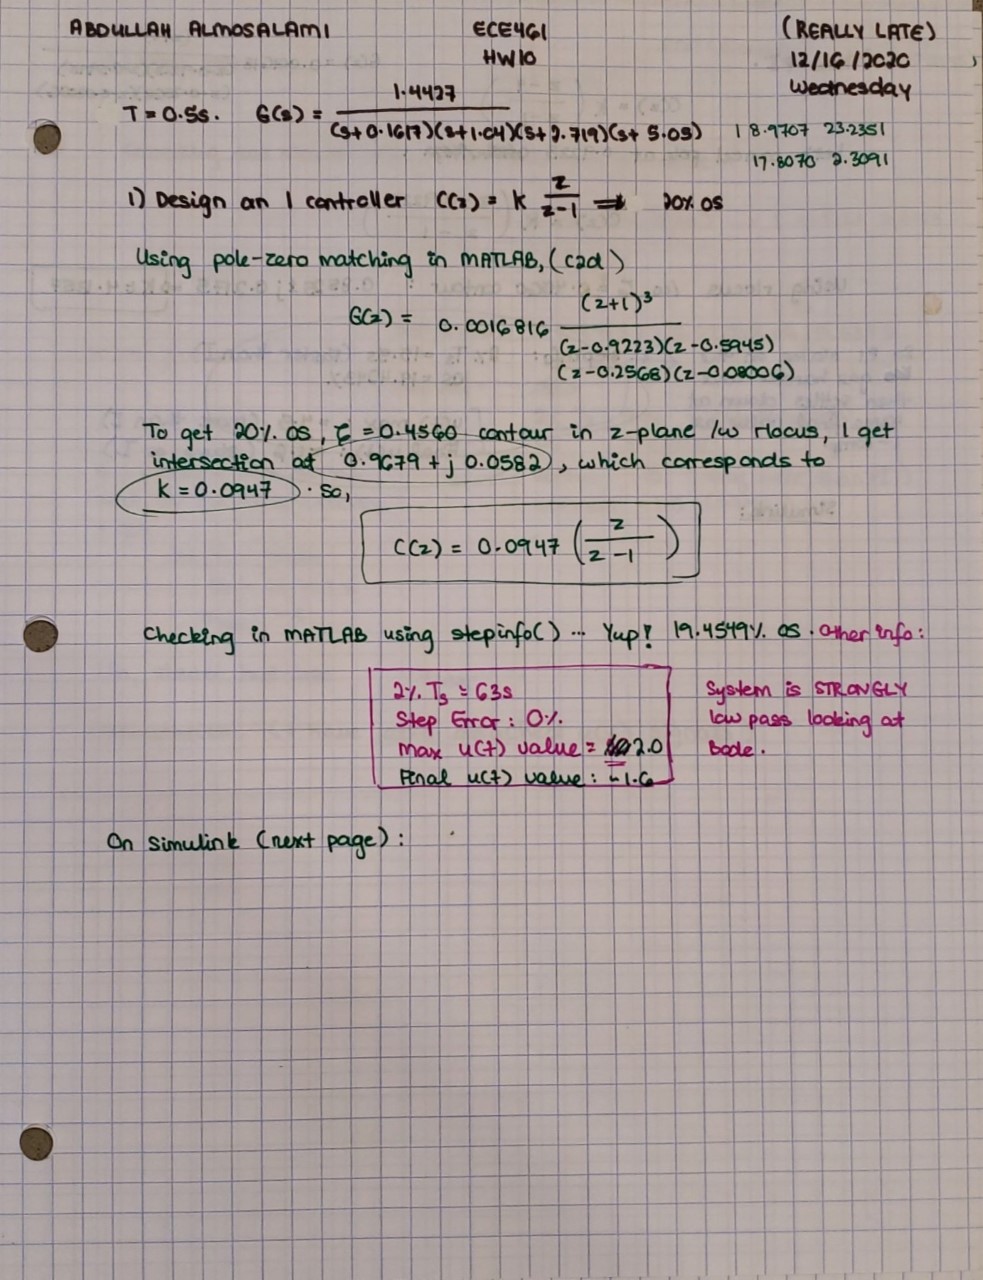 ABDULLAH ALMOSALAMI ECE461 (REALLY LATE)
HW10 12/16/2020
Wednesday
T = 0.5s. G(s) = 1.4427 / (s+0.1617)(s+1.04)(s+2.719)(s+5.05)
18.9707 23.2351
17.8070 2.3091
1) Design an I controller C(z) = k z / z-1 ⇒ 20% OS
Using pole-zero matching in MATLAB, (c2d)
G(z) = 0.0016816 (z+1)³ / (z-0.9223)(z-0.5945)
(z-0.2568)(z-0.08006)
To get 20% OS, ζ = 0.4560 contour in z-plane /w rlocus, I get
intersection at 0.9679 + j 0.0582, which corresponds to
k = 0.0947. So,
C(z) = 0.0947 ( z / z-1 )
Checking in MATLAB using stepinfo() ... Yup! 19.4549% OS. Other info:
2% Ts ≈ 63s
Step Error: 0%
Max u(t) value = 2.0
Final u(t) value: ~1.6
System is STRONGLY
low pass looking at
bode.
On simulink (next page):